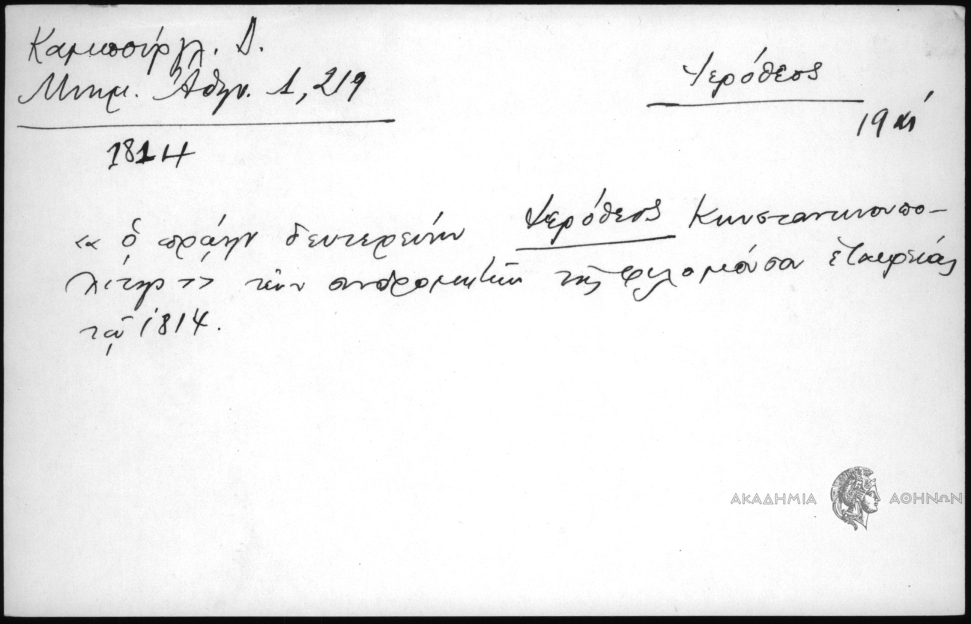 Καμπούρογλ. Δ.
Μνημ. Ἀθην. 1, 219
1814
Ἱερόθεος
19 αἰ
« ὁ πρώην δευτερεύων Ἱερόθεος Κωνσταντινουπο-
λίτης >> τῶν συνδρομητῶν τῆς φιλομούσου ἑταιρείας
τοῦ 1814.
ΑΚΑΔΗΜΙΑ ΑΘΗΝΩΝ